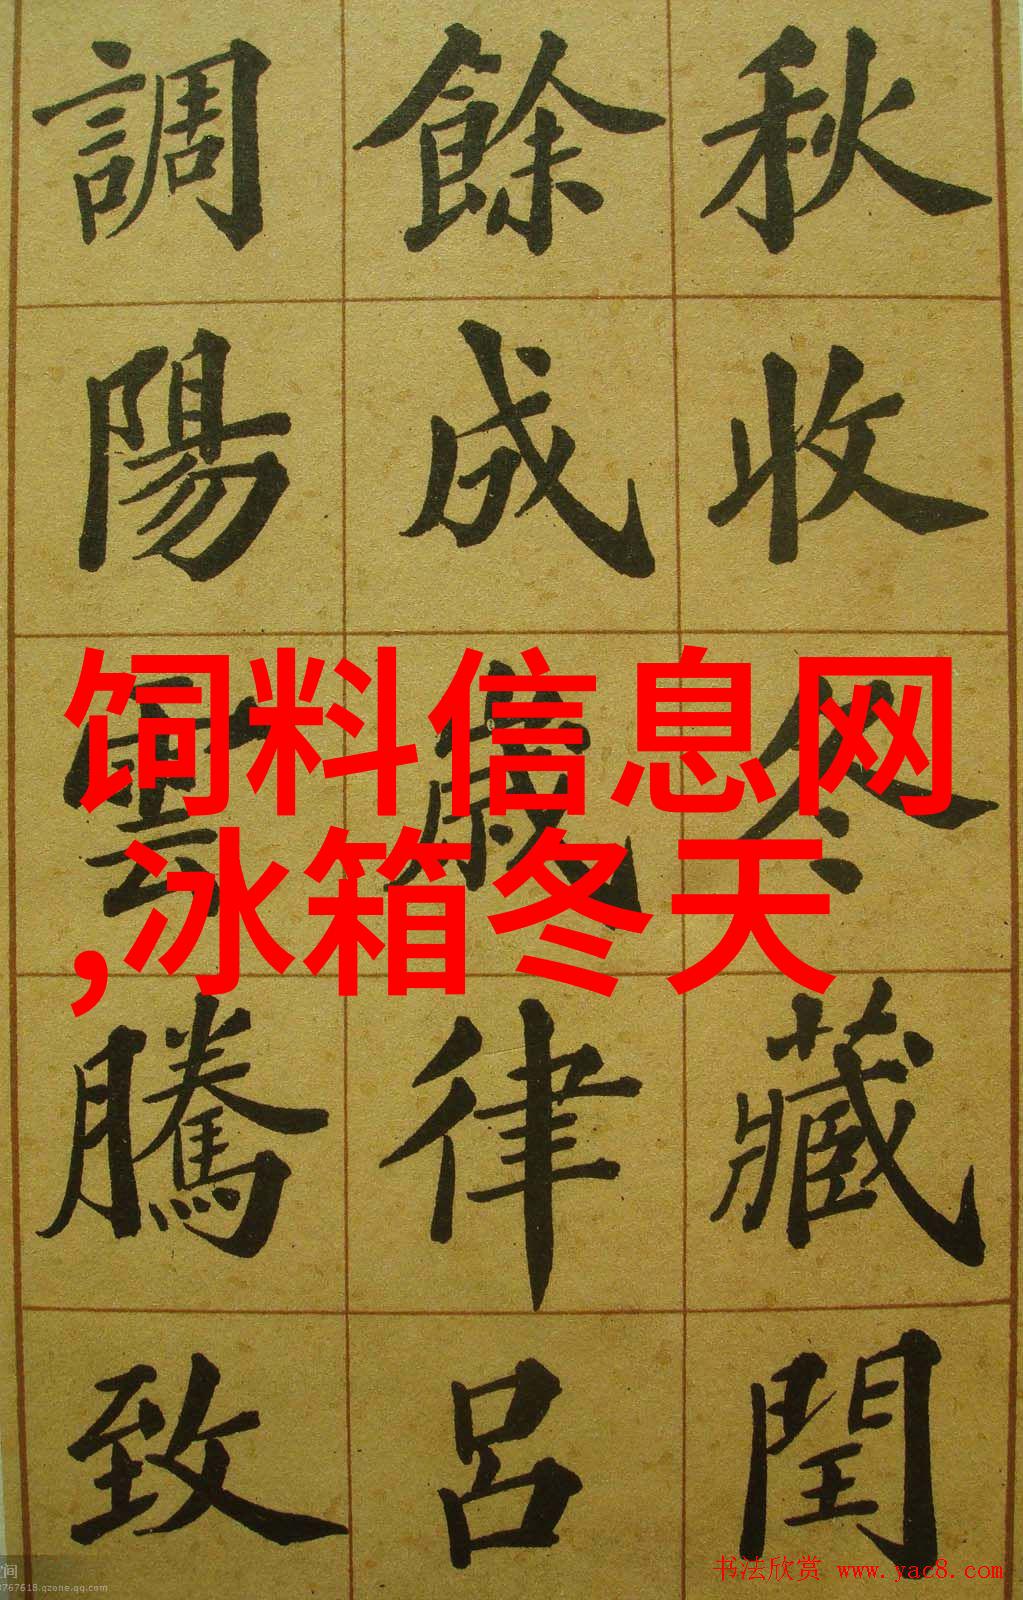 秋收冬藏閏
餘成歲律呂
調陽雲騰致
饲料信息网
,冰箱冬天
书法欣赏 www.yac8.com
空间
3767618.qzone.qq.com